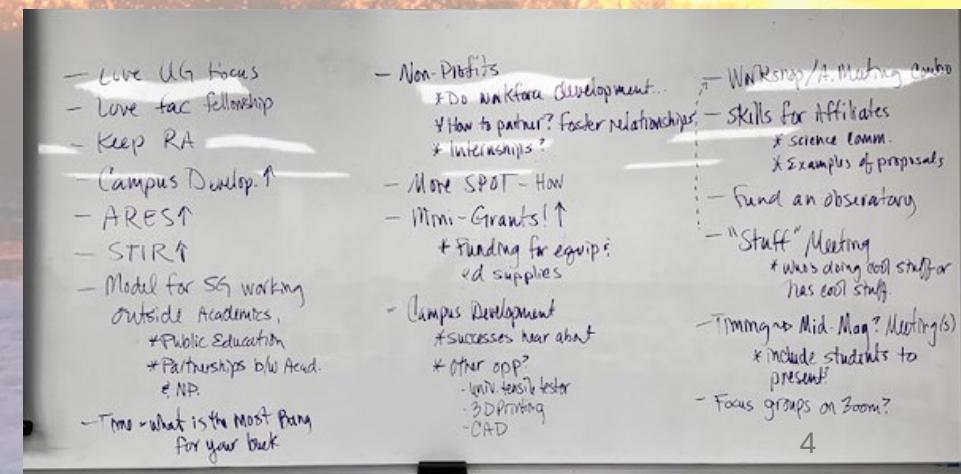 - Love UG Focus
- Love fac fellowship
- Keep RA
- Campus Develop. ↑
- ARES↑
- STIR↑
- Model for SG working
outside Academics,
* Public Education
* Partnerships b/w Acad.
& NP.
- Time - what is the most Bang
for your buck
- Non-Profits
* Do workforce development...
* How to partner? Foster relationships,
* Internships?
- More SPOT - How
- Mini-Grants! ↑
* Funding for equip &
ed supplies
- Campus Development
* successes hear about
* Other opp?
- univ. tensile tester
- 3D Printing
- CAD
- Workshop/A. Meeting Combo
- Skills for Affiliates
* Science Comm.
* Examples of proposals
- Fund an observatory
- "Stuff" Meeting
* who's doing cool stuff or
has cool stuff.
- Timing → Mid-May? Meeting(s)
* include students to
present?
- Focus groups on Zoom?
4